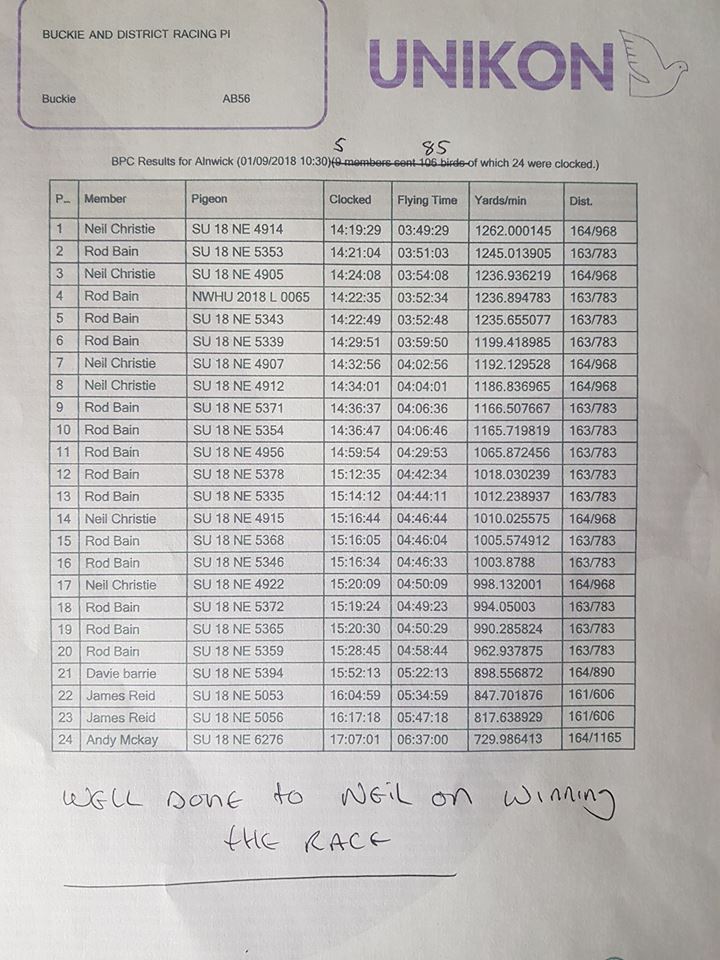 BUCKIE AND DISTRICT RACING PI
Buckie AB56
UNIKON
5 85
BPC Results for Alnwick (01/09/2018 10:30)(9 members sent 106 birds of which 24 were clocked.)
P... Member Pigeon Clocked Flying Time Yards/min Dist.
1 Neil Christie SU 18 NE 4914 14:19:29 03:49:29 1262.000145 164/968
2 Rod Bain SU 18 NE 5353 14:21:04 03:51:03 1245.013905 163/783
3 Neil Christie SU 18 NE 4905 14:24:08 03:54:08 1236.936219 164/968
4 Rod Bain NWHU 2018 L 0065 14:22:35 03:52:34 1236.894783 163/783
5 Rod Bain SU 18 NE 5343 14:22:49 03:52:48 1235.655077 163/783
6 Rod Bain SU 18 NE 5339 14:29:51 03:59:50 1199.418985 163/783
7 Neil Christie SU 18 NE 4907 14:32:56 04:02:56 1192.129528 164/968
8 Neil Christie SU 18 NE 4912 14:34:01 04:04:01 1186.836965 164/968
9 Rod Bain SU 18 NE 5371 14:36:37 04:06:36 1166.507667 163/783
10 Rod Bain SU 18 NE 5354 14:36:47 04:06:46 1165.719819 163/783
11 Rod Bain SU 18 NE 4956 14:59:54 04:29:53 1065.872456 163/783
12 Rod Bain SU 18 NE 5378 15:12:35 04:42:34 1018.030239 163/783
13 Rod Bain SU 18 NE 5335 15:14:12 04:44:11 1012.238937 163/783
14 Neil Christie SU 18 NE 4915 15:16:44 04:46:44 1010.025575 164/968
15 Rod Bain SU 18 NE 5368 15:16:05 04:46:04 1005.574912 163/783
16 Rod Bain SU 18 NE 5346 15:16:34 04:46:33 1003.8788 163/783
17 Neil Christie SU 18 NE 4922 15:20:09 04:50:09 998.132001 164/968
18 Rod Bain SU 18 NE 5372 15:19:24 04:49:23 994.05003 163/783
19 Rod Bain SU 18 NE 5365 15:20:30 04:50:29 990.285824 163/783
20 Rod Bain SU 18 NE 5359 15:28:45 04:58:44 962.937875 163/783
21 Davie barrie SU 18 NE 5394 15:52:13 05:22:13 898.556872 164/890
22 James Reid SU 18 NE 5053 16:04:59 05:34:59 847.701876 161/606
23 James Reid SU 18 NE 5056 16:17:18 05:47:18 817.638929 161/606
24 Andy Mckay SU 18 NE 6276 17:07:01 06:37:00 729.986413 164/1165
WELL DONE to NEIL on winning
tHE RACE